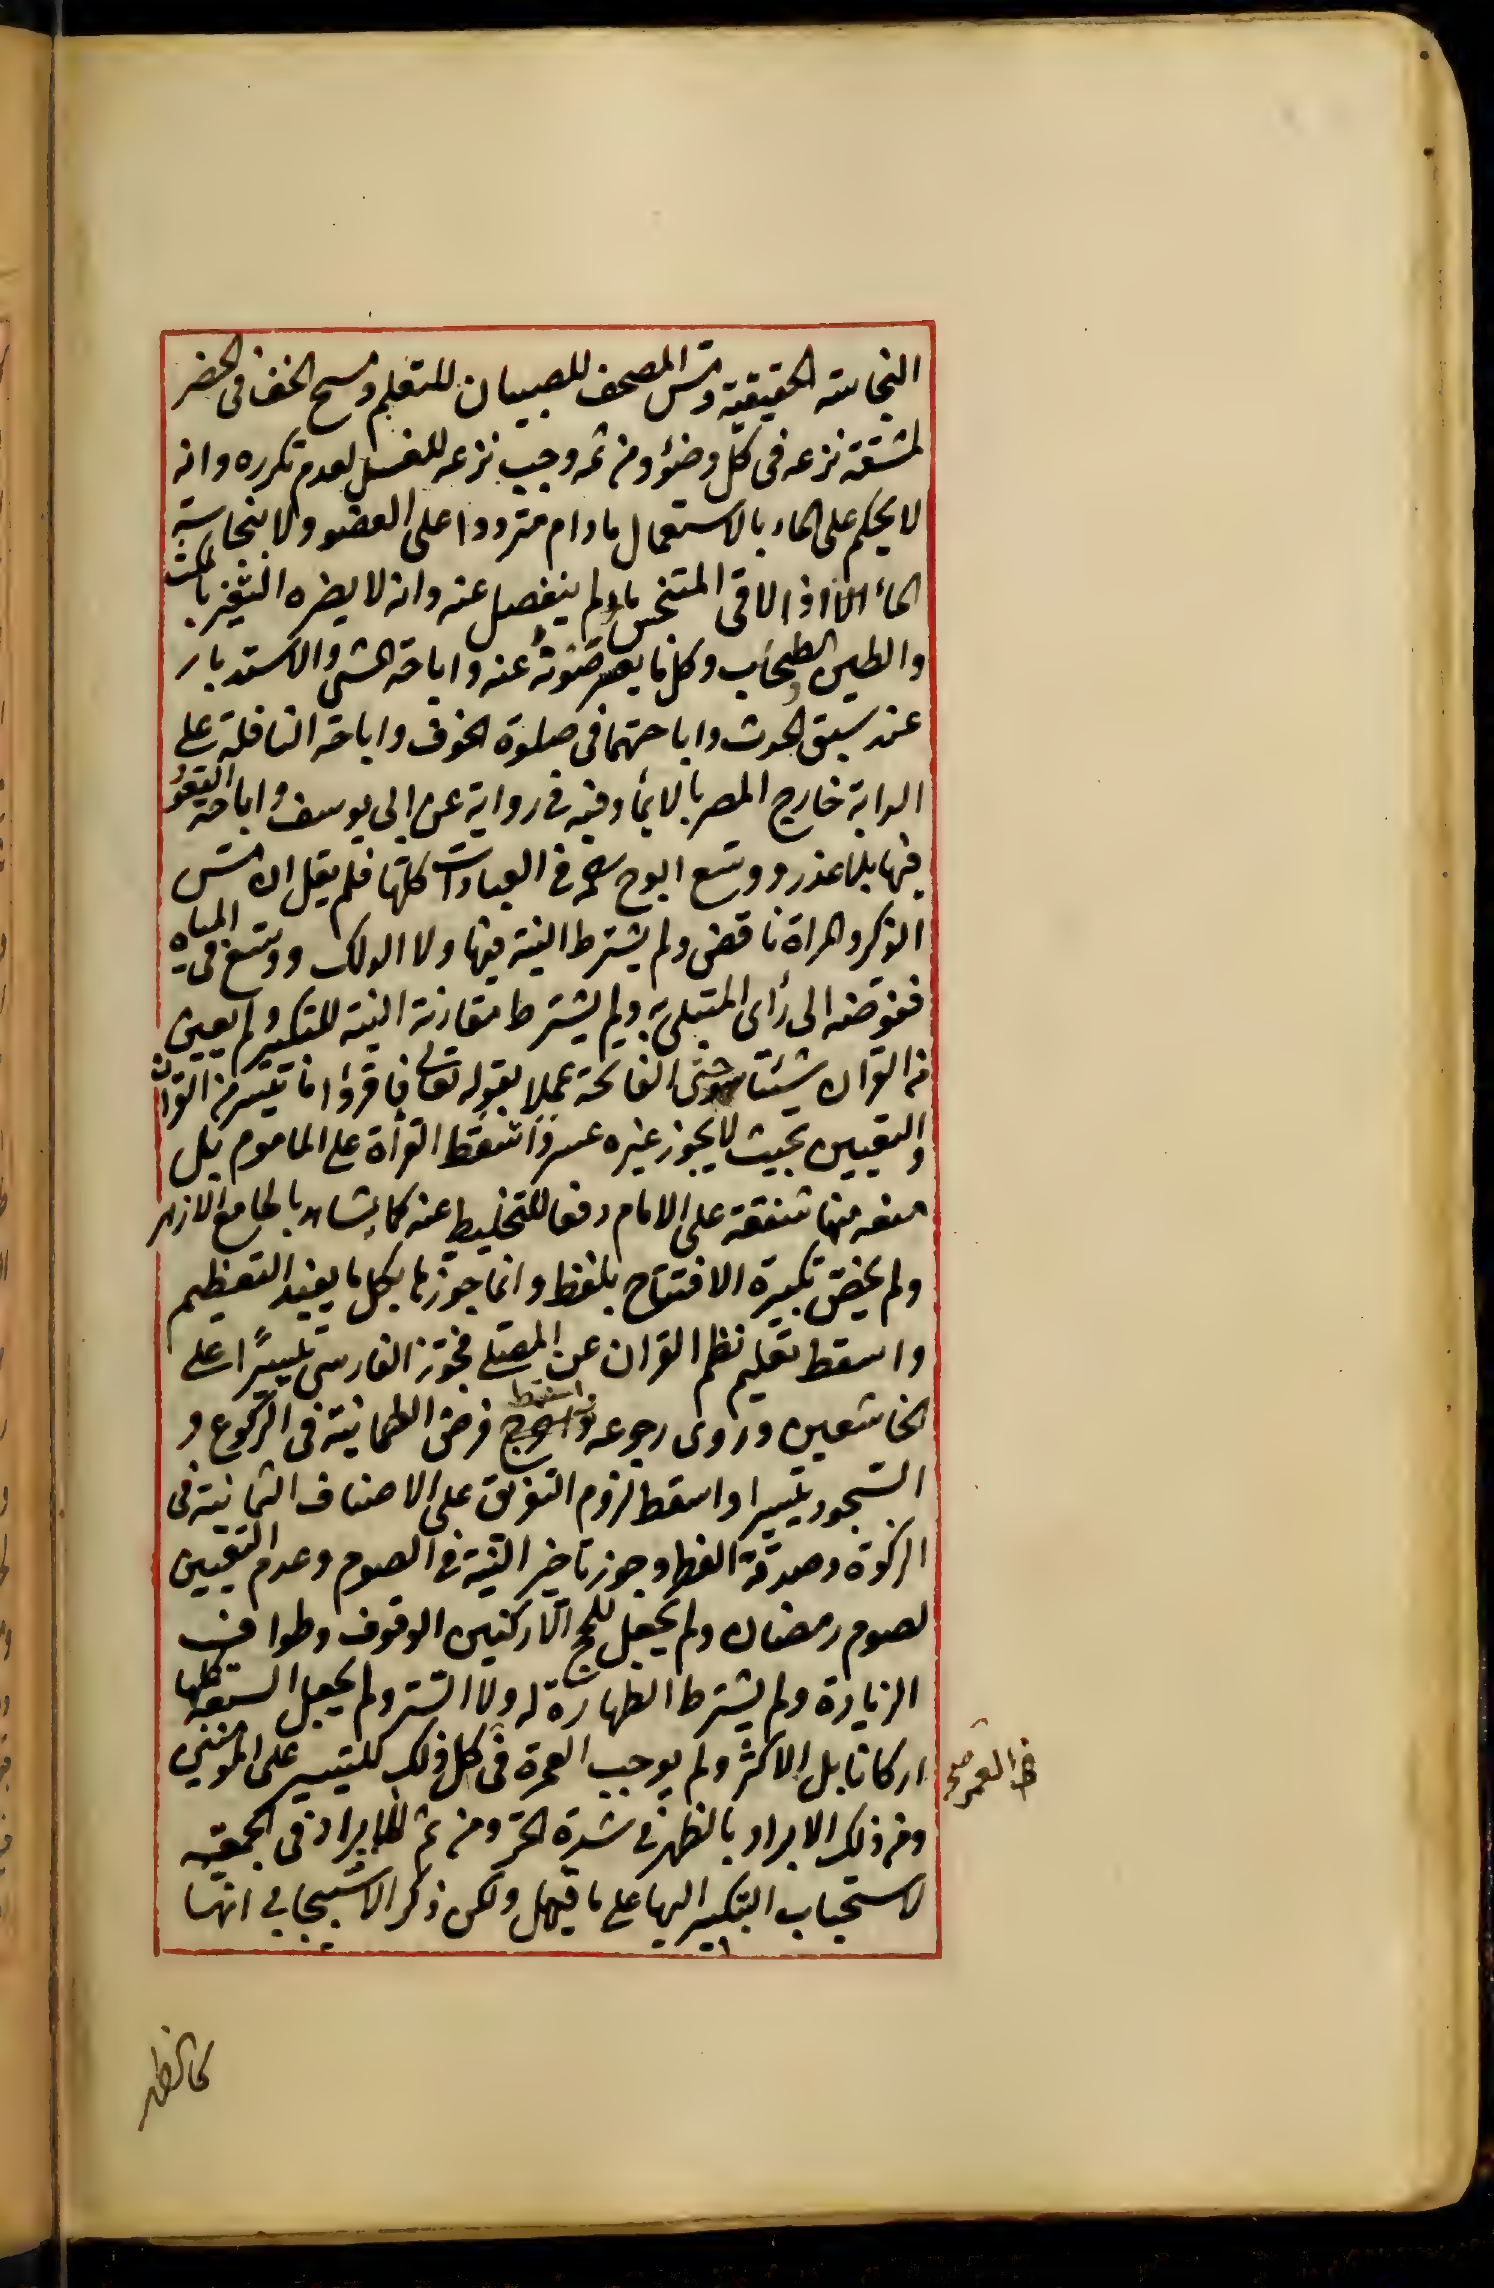 النجاسة الحقيقية ومس المصحف للصبيان للتعلم ومسح الخف في الحضر
لمشقة نزعه في كل وضؤ ومن ثمه وجب نزعه للغسل لعدم تكرره وانه
لا يحكم على الماء بالاستعمال ما دام مترددا على العضو ولا بنجاسة
الماء الا اذا لاقى المتنجس ما لم ينفصل عنه وانه لا يضره التغير بالمكث
والطين والطحلب وكل ما يعسر صونه عنه واباحة المشي والاستدبار
عند سبق الحدث واباحتهما في صلوة الخوف واباحة النافلة على
الدابة خارج المصر بالايماء وفيه في رواية عن ابي يوسف واباحة القعود
فيها بلا عذر ووسع ابو ح رحمه في العبادات كلها فلم يقل ان مس
الذكر والمراة ناقض ولم يشترط النية فيها ولا الدلك ووسع في المياه
ففوضه الى رأى المبتلى به ولم يشترط مقارنة النية للتكبير ولم يعين
من القران شيئا حتى الفاتحة عملا بقوله تعالى فاقرؤا ما تيسر من القران
والتعيين بحيث لا يجوز غيره عسر واسقط القرأة على الماموم بل
منعه منها شفقة على الامام دفعا للتخليط عنه كما يشاهد بالجامع الازهر
ولم يخص تكبيرة الافتتاح بلفظ وانما جوزها بكل ما يفيد التعظيم
واسقط تعليم نظم القران عن المصلى فجوز الفارسي تيسيرا على
الخاشعين وروى رجوعه واسقط فرض الطمانينة في الركوع و
السجود تيسيرا واسقط لزوم التفريق على الاصناف الثمانية في
الزكوة وصدقة الفطر وجوز تاخير النية في الصوم وعدم التعيين
لصوم رمضان ولم يجعل للحج الا ركنين الوقوف وطواف
الزيارة ولم يشترط الطهارة له ولا الستر ولم يجعل السبعة كلها
اركانا بل الاكثر ولم يوجب العمرة في كل ذلك للتيسير على المؤمنين
ومن ذلك الابراد بالظهر في شدة الحر ومن ثم لا ابراد في الجمعة
لاستحباب التبكير اليها على ما قيل ولكن ذكر الاسبيجابي انها
كالظهر